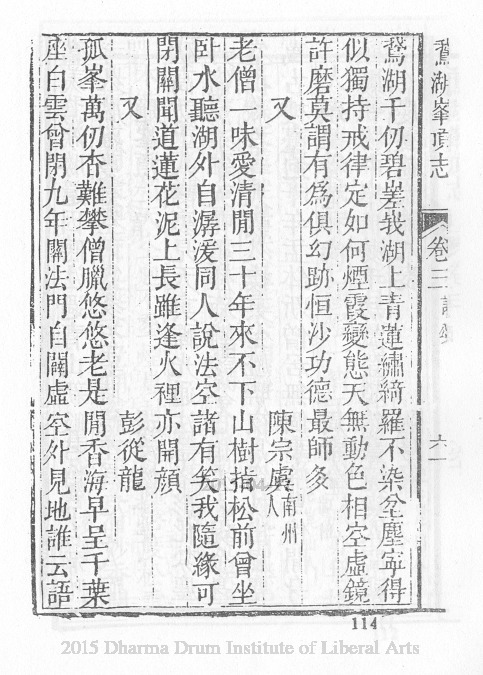 鵞湖峯頂志
卷三
六一
鵞湖千仞碧嵳莪湖上青蓮繡綺羅不染坌塵寧得
似獨持戒律定如何煙霞變態天無動色相空虛鏡
許磨莫謂有為俱幻跡恒沙功德最師多
又 陳宗虞南州人
老僧一味愛清閒三十年來不下山樹指松前曾坐
卧水聽湖外自潺湲同人說法空諸有笑我隨緣可
閉關聞道蓮花泥上長雖逢火裡亦開顔
又 彭從龍
孤峯萬仞杳難攀僧臘悠悠老是閒香海早呈千葉
座白雲曾閉九年關法門自闢虛空外見地誰云語
114
2015 Dharma Drum Institute of Liberal Arts